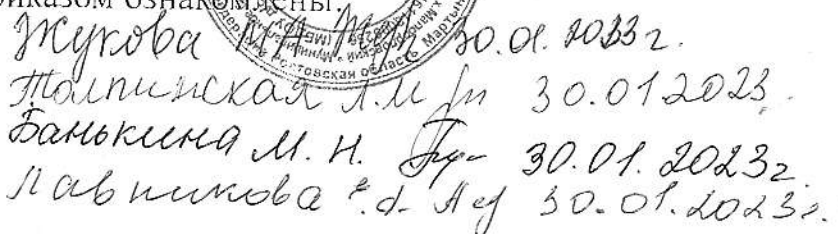 приказом ознакомлены:
Жукова М.А. 30.01.2023г.
Толпинская Л.М. 30.01.2023.
Банькина М. Н. 30.01.2023г
Лавникова 30.01.2023г.